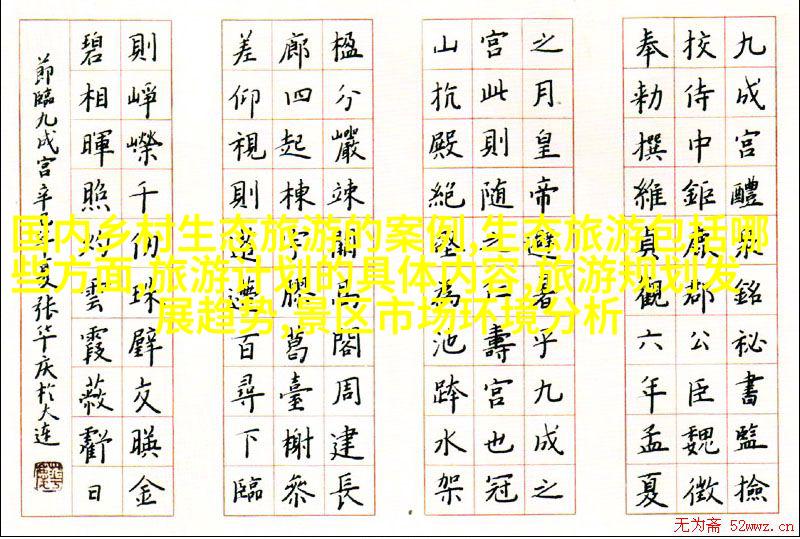 九成宮醴泉銘秘書監撿
挍侍中鉅鹿郡公臣魏徵
奉勑撰維貞觀六年孟夏
之月皇帝避暑乎九成之
宮此則随之仁壽宮也冠
山抗殿絕壑為池跨水架
楹分巖竦闕高閣周建長
廊四起棟宇膠葛臺榭參
差仰視則迢遰百尋下臨
則崢嶸千仞珠璧交暎金
碧相暉照灼雲霞蔽虧日
節臨九成宮辛年夏張华庆於大连
国内乡村生态旅游的案例,生态旅游包括哪
些方面,旅游计划的具体内容,旅游规划发
展趋势,景区市场环境分析
无为斋 52wwz.cn